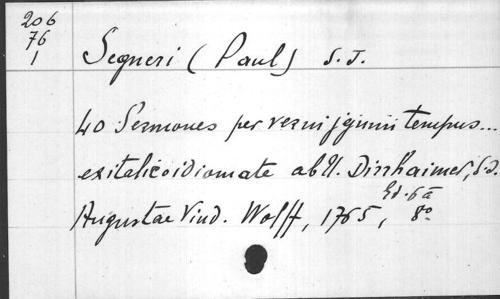 206
76
1
Segneri (Paul) S. J.
40 Sermones per verni jejunii tempus...
ex italico idiomate ab U. Dirrhaimer, S. J.
Ed. 6 a
Augustae Vind. Wolff, 1765, 8º